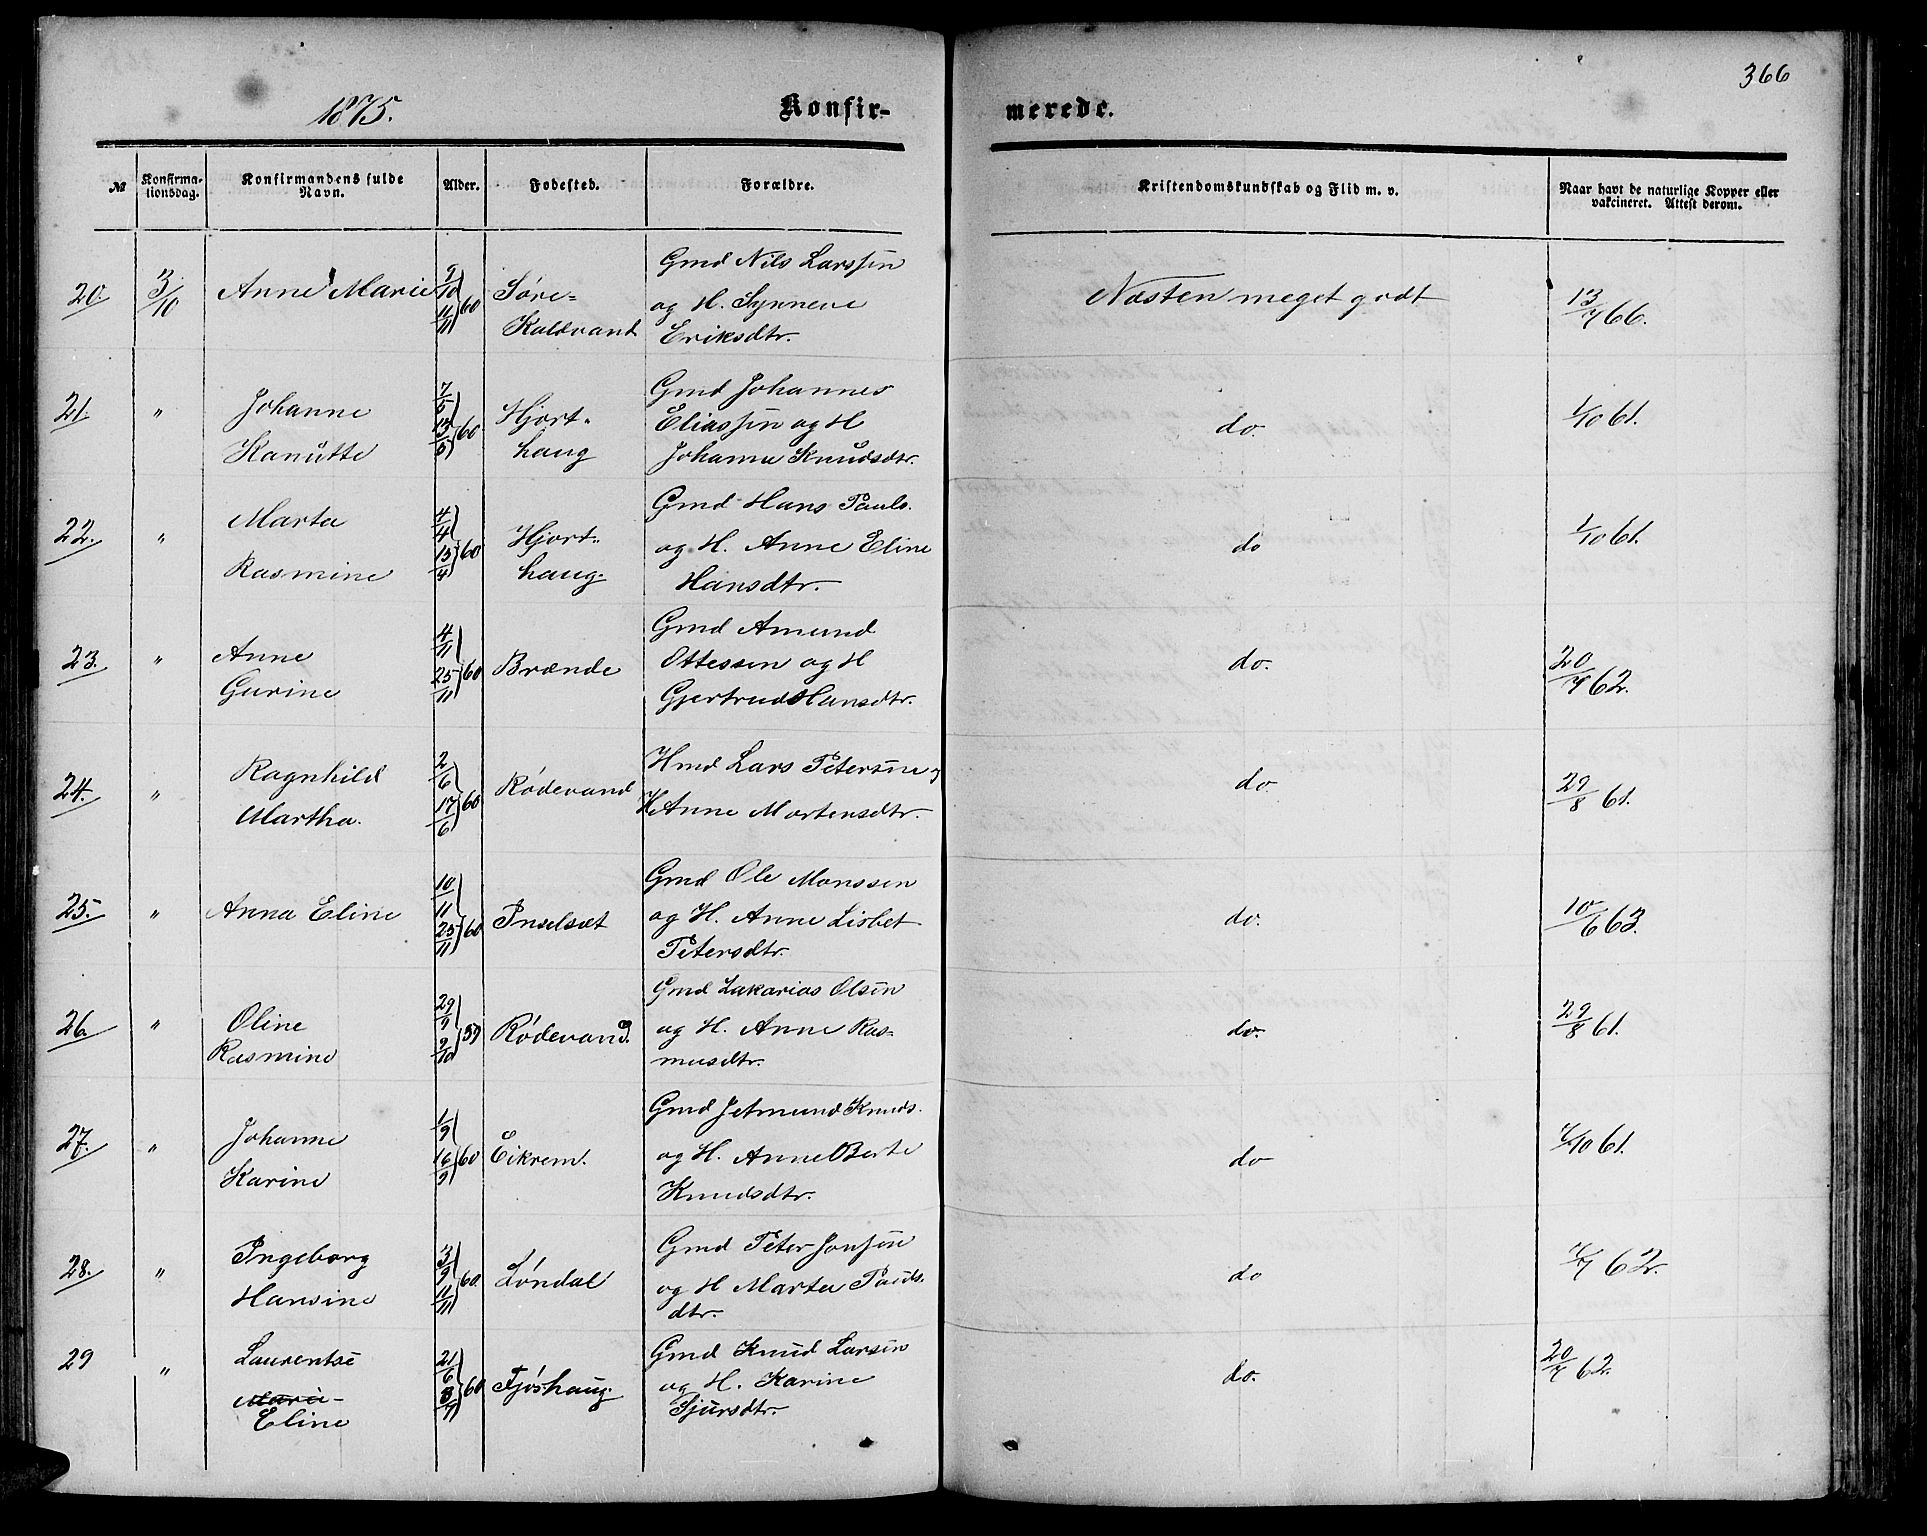 366
1875.
Konfir-
merede.
№
Konfirma-
tionsdag.
Konfirmandens fulde
Navn.
Alder.
Fødested.
Forældre.
Kristendomskundskab og Flid m. v.
Naar havt de naturlige Kopper eller
vakcineret. Attest derom.
20. 3/10 Anne Marie 9/10 11/11 60 Søre-
Kaldvand
Gmd Nils Larssen
og H. Synneve
Eriksdtr.
Næsten meget godt
13/7 66.
21. " Johanne
Kanutte
7/5 13/5 60
Hjort-
haug
Gmd Johannes
Eliassen og H
Johanne Knudsdtr.
do.
1/10 61.
22. " Marta
Rasmine
4/4 15/4 60
Hjort-
haug.
Gmd Hans Pauls.
og H. Anne Eline
Hansdtr.
do
1/10 61.
23. " Anne
Gurine
4/11 25/11 60
Brænde
Gmd Amund
Ottessen og H
Gjertrud Hansdtr.
do.
20/7 62.
24. " Ragnhild
Martha.
2/6 17/6 60
Rødevand
Hmd Lars Petersen og
H Anne Mortensdtr.
do.
29/8 61.
25. " Anna Eline 10/11 25/11 60 Indselsæt
Gmd Ole Monssen
og H. Anne Lisbet
Petersdtr.
do.
10/6 63.
26. " Oline
Rasmine
29/9 9/10 59
Rødevand.
Gmd Zakarias Olsen
og H. Anne Ras-
musdtr.
do.
29/8 61.
27. " Johanne
Karine
1/9 16/9 60
Eikrem.
Gmd Jetmund Knuds.
og H. Anne Berte
Knudsdtr.
do
/10 61.
28. " Ingeborg
Hansine
3/9 11/11 60.
Løndal
Gmd Peter Jonsen
og H Marta Pauls.
dtr.
do
7/7 62.
29 " Laurentse
Marie-
Eline
21/6 8/7 60
Fjøshaug.
Gmd Knud Larsen
og H. Karine
Sjursdtr.
do.
20/7 62.